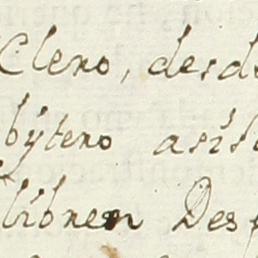 Clero, desde
bytero asis
librren Desp